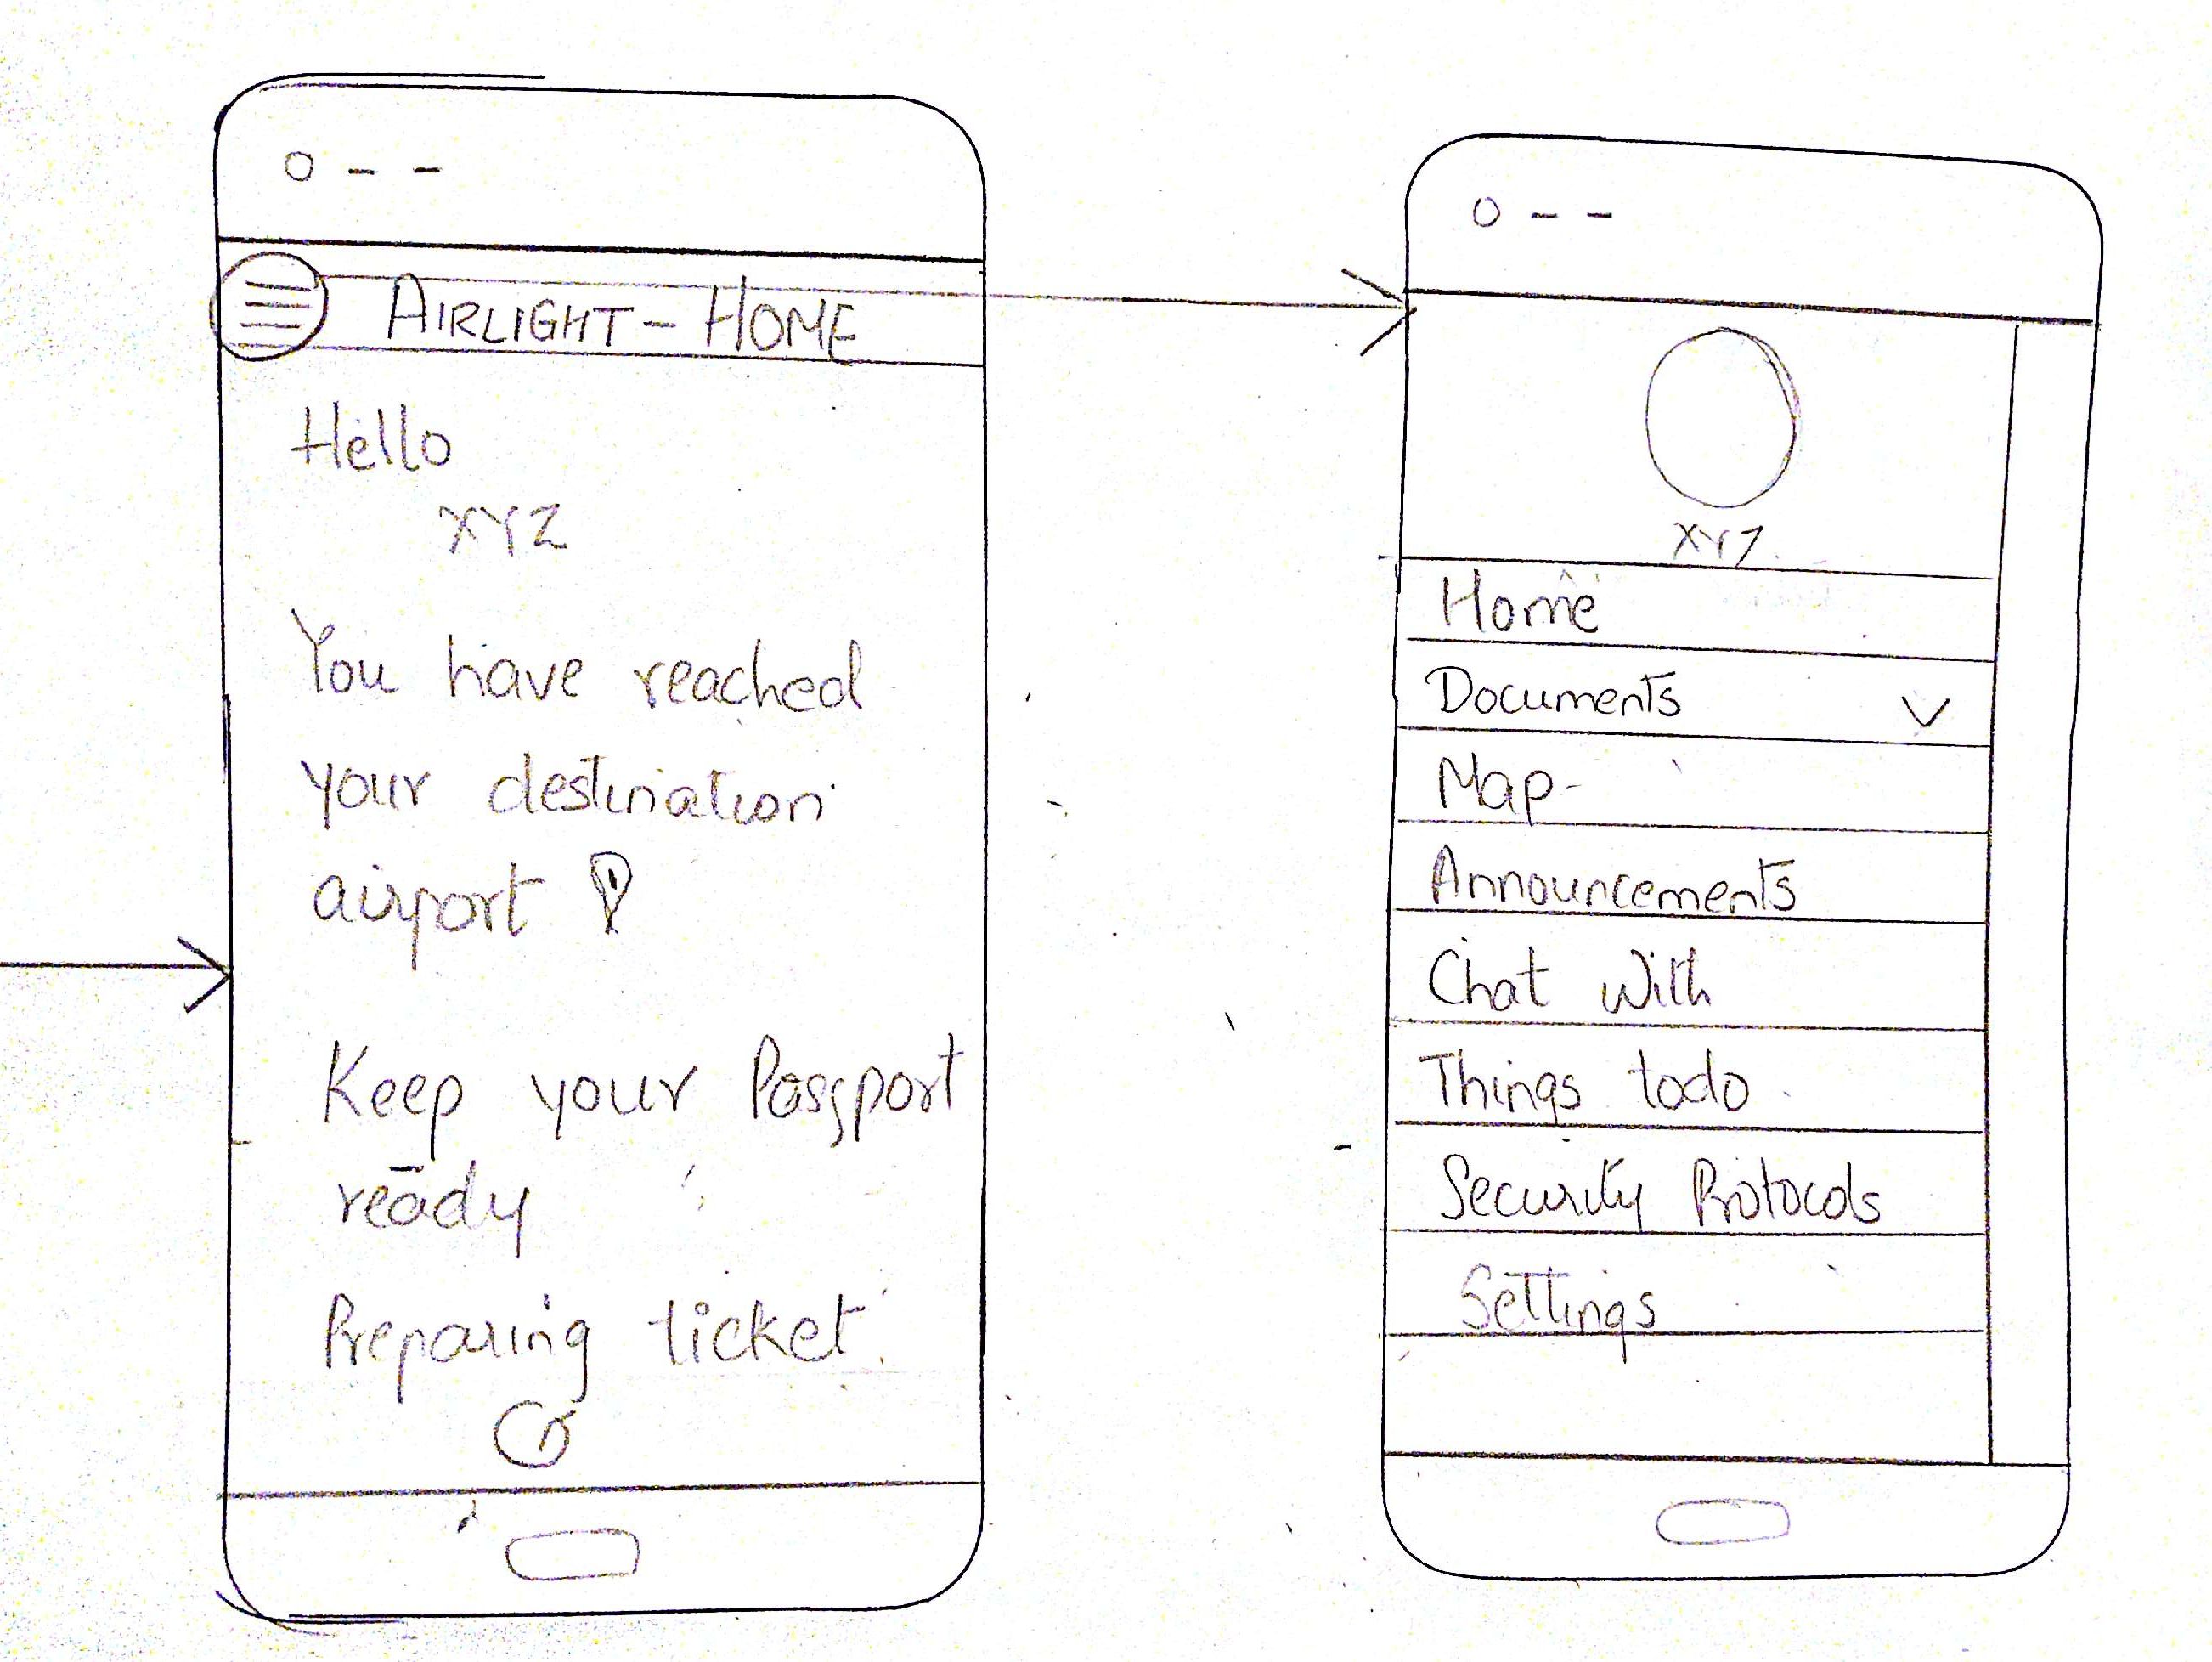 AIRLIGHT - HOME
Hello
XYZ
You have reached
your destination
airport
Keep your Passport
ready
Preparing ticket
XYZ
Home
Documents
Map
Announcements
Chat With
Things todo
Security Protocols
Settings